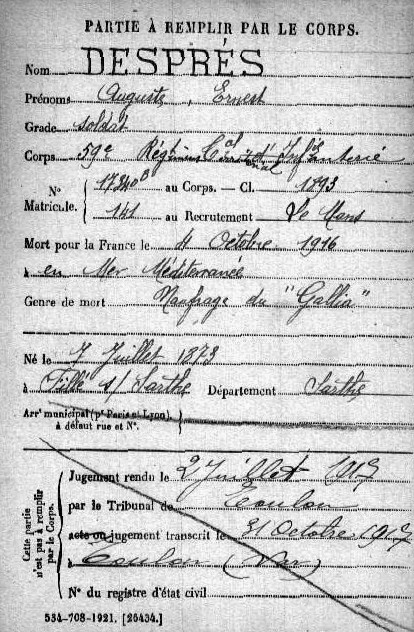 PARTIE À REMPLIR PAR LE CORPS.
Nom DESPRÉS
Prénoms Auguste, Ernest
Grade soldat
Corps 59e Régiment tal d'Infanterie
N° Matricule. 17340B au Corps. — Cl. 1893
141 au Recrutement Le Mans
Mort pour la France le 4 Octobre 1916
à en Mer Méditerranée
Genre de mort Naufrage du "Gallia"
Né le 7 Juillet 1873
à Fillé s/ Sarthe Département Sarthe
Arrt municipal (pr Paris et Lyon).
à défaut rue et N°.
Cette partie n'est pas à remplir par le Corps.
Jugement rendu le 2 Juillet 1917
par le Tribunal de Toulon
acte ou jugement transcrit le 31 Octobre 1917
à Toulon (Var)
N° du registre d'état civil
534-708-1921. [26434.]